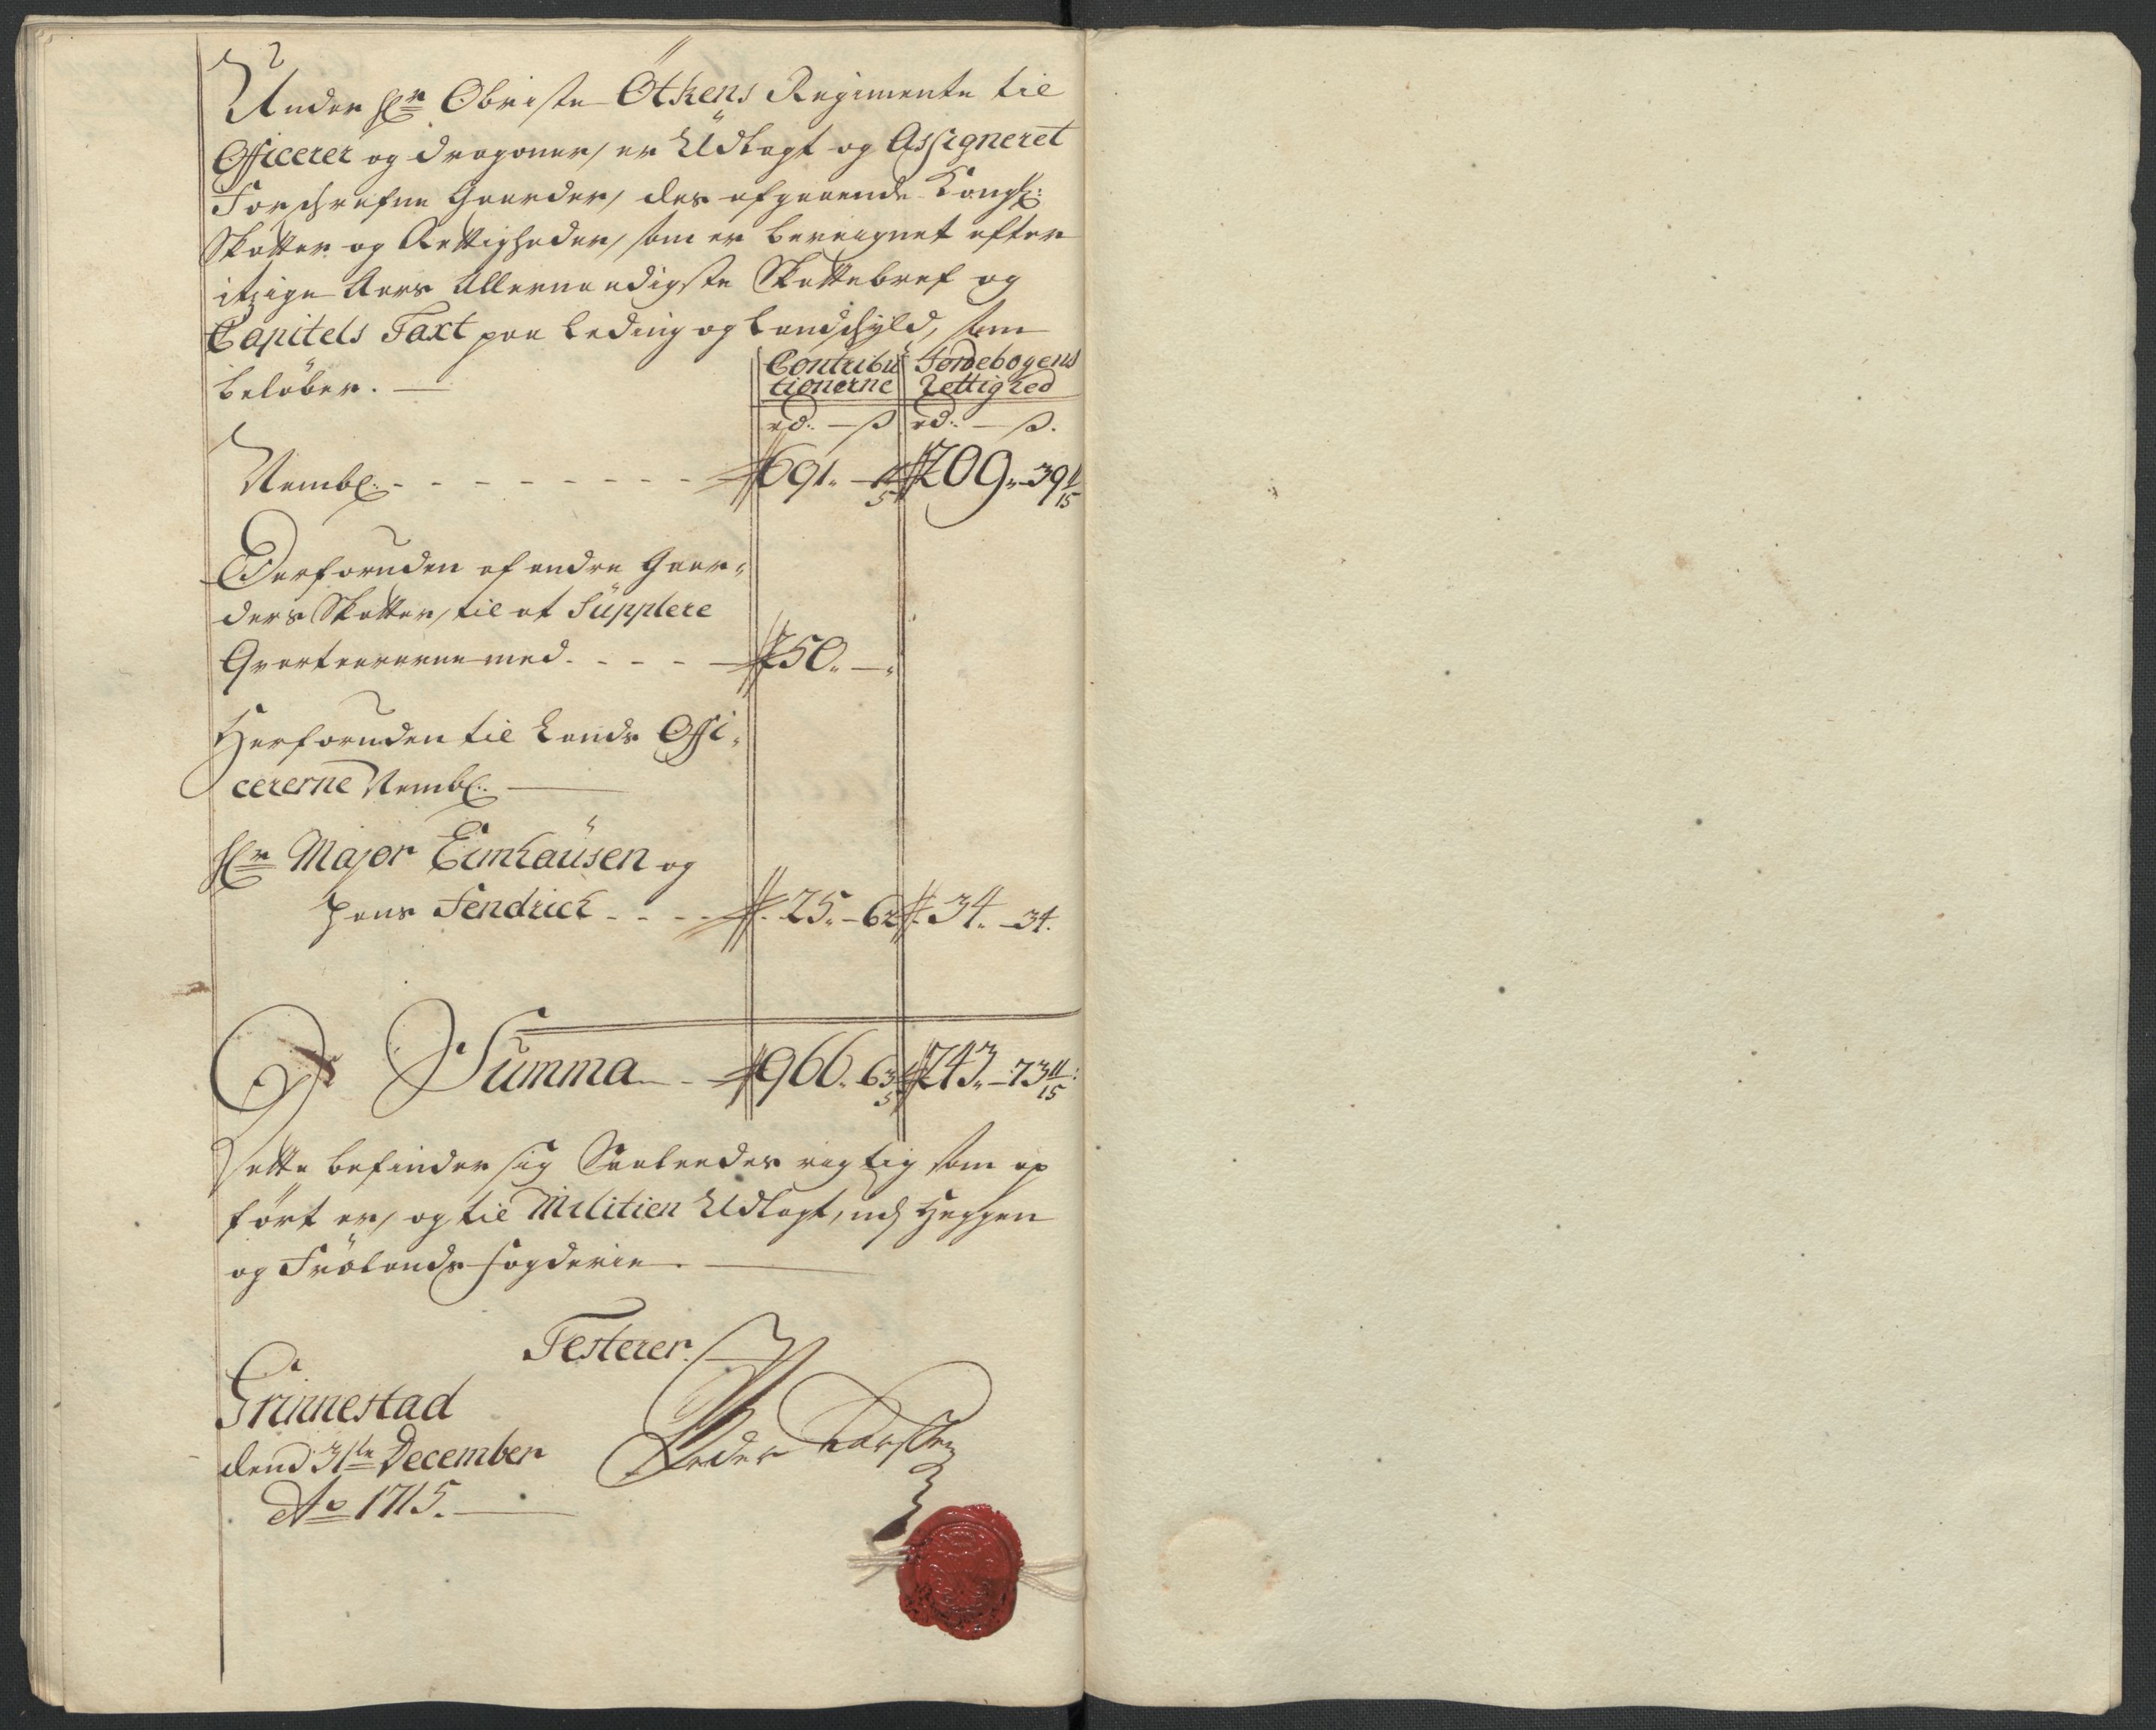 Under Hr Obriste Ötkens Regimente til
Officerer og dragoner, er Udlagt og Assigneret
Forschrefne Gaarder, des afgaaende Kongl:
Skatter og Rettigheder, som er bereignet efter
itzige Aars Allernaadigste Skattebref og
Capitels Taxt paa Leding og Landschyld, som
beløber. —
Contribu
tionerne
Jordebogens
Rettighed
rd: — ß rd: — ß.
Nembl: - - - 691. 209. 39 11/15
Derforuden af andre Gaar-
ders Skatter, til at Supplere
Qvarteererne med - - - 250. —
Herforuden til Lands Offi-
cererne Nembl: —
Hr Major Eimhausen og
hans Fendrich - - - 25. 62 34. 34.
Summa - - 966. 63 243. 73 11/15
Dette befinder sig Saaleedes rigtig som op
ført er, og til Militien Udlagt, udj Heggen
og Frølands fogderie. —
Testerer
Grinnestad
dend 31te December
Ao 1715. —
Peder Larssen